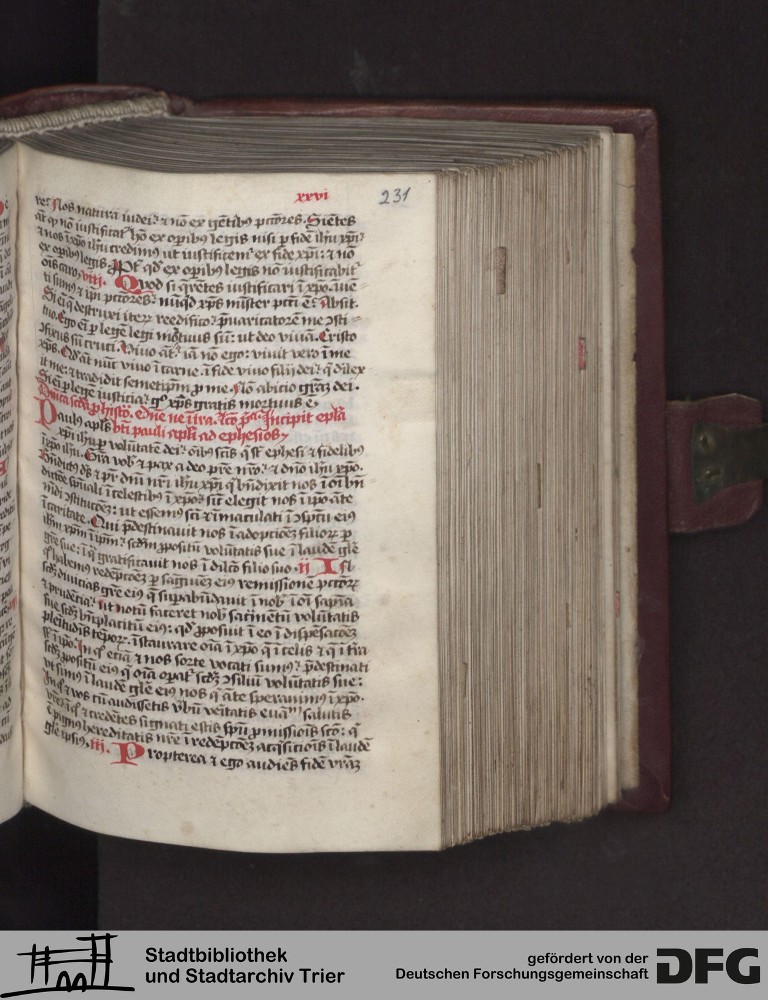 xxvi 231
re? Nos natura iudei: ⁊ nō ex gētibꝰ pctōres. Sciētes
at q̄ nō iustificat᷑ hō ex opibꝰ legis nisi p fidē ihū xp̄i:
⁊ nos ī xp̄o ihū credimꝰ ut iustificem᷑ ex fide xp̄i: ⁊ nō
ex opibꝰ legis. Ppt̄ qd̓ ex opibꝰ legis nō iustificabit᷑
oīs caro. viii. Quod si q̄rētes iustificari ī xp̄o īuē-
ti sumꝰ ⁊ ip̄i pctōres: nūqd xp̄s mīster pcti ē: Absit.
Si eī q̄ destruxi iterū reedifico: p̄uaricatorē me ↄsti-
tuo. Ego eī p legē legi mortuus sū: ut deo viuā. Cristo
ↄfixus sū cruci. Viuo āt: iā nō ego: viuit vero ī me
xp̄s. Qd̓ āt nūc viuo ī carne. ī fide viuo filij dei: q̄ dilex
it me: ⁊ tradidit semetipm̄ p me. Nō abicio grām dei.
Si eī p legē iusticia: gͦ xp̄s gratis mortuus ē.
Incipit epl̄a
Paulus apl̄s bt̄i pauli apl̄i ad ephesios
xp̄i ihū p volūtatē dei: oībꝰ scīs q̄ sūt ephesi ⁊ fidelibꝰ
ī xp̄o ihū. Gra vob̄ ⁊ pax a deo pr̄e nr̄o: ⁊ dn̄o ihū xp̄o.
Bn̄dictꝰ ds̄ ⁊ pr̄ dn̄i nr̄i ihū xp̄i q̄ bn̄dixit nos ī oī bn̄
dictōe sp̄uali ī celestibꝰ ī xp̄o: sic̄ elegit nos ī ip̄o āte
mūdi ↄstitucōez: ut essemꝰ scī ⁊ īmaculati ī ↄspectu eiꝰ
ī caritate. Qui p̄destinauit nos ī adopcōez filioꝝ p
ihm̄ xp̄m ī ip̄m: scdm̄ ppositū volūtatis sue ī laudē gl̄e
gr̄e sue: ī q̄ gratificauit nos ī dilc̄o filio suo. ii In
q̄ habemꝰ redēpcōez p sāguinē eiꝰ remissionē pctōꝝ
scdm̄ diuicias gr̄e eiꝰ q̄ supabūdauit ī nob̄ ī oī sapīa
⁊ prudēcia: ut notū faceret nob̄ sacm̄etū volūtatis
sue scdm̄ bn̄placitū eiꝰ: qd̓ pposuit ī eo ī dispēsacōez
plēitudīs tēpoꝝ. īstaurare oīa ī xp̄o q̄ ī celis ⁊ q̄ ī tr̄a
sūt ī ip̄o. In q̄ eciā ⁊ nos sorte vocati sumꝰ: p̄destinati
scdm̄ ppositū eiꝰ q̄ oīa opat᷑ scdm̄ ↄsiliū volūtatis sue:
ut simꝰ ī laudē gl̄e eiꝰ nos q̄ āte speranimꝰ ī xp̄o.
In q̄ ⁊ vos cū audissetis v̄bū veritatis euāᵐ salutis
vr̄e: ī q̄ ⁊ credētes signati estis sp̄u pmissiois scō: q̄
ē pignꝰ hereditatis nr̄e ī redēpcōez acq̄sicōis ī laudē
gl̄e ipsiꝰ. iii. Propterea ⁊ ego audiēs fidē vr̄az
Stadtbibliothek
und Stadtarchiv Trier
gefördert von der
Deutschen Forschungsgemeinschaft
DFG